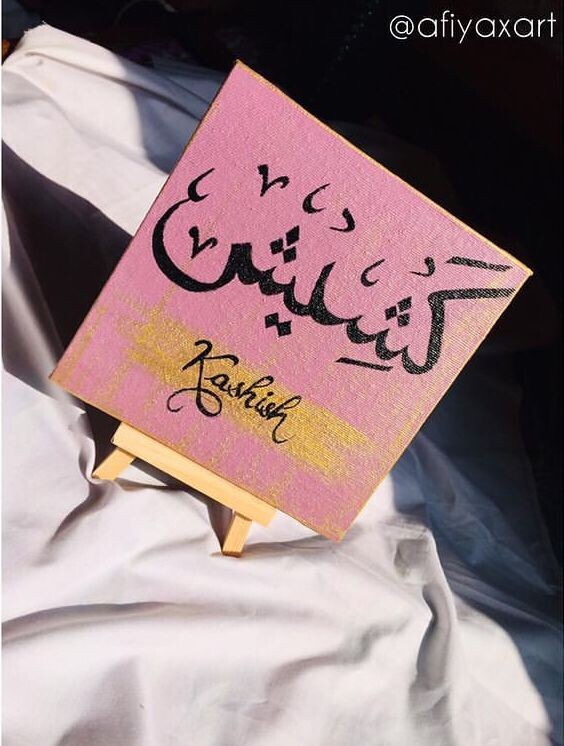 @afiyaxart
كَشِيش
Kashish